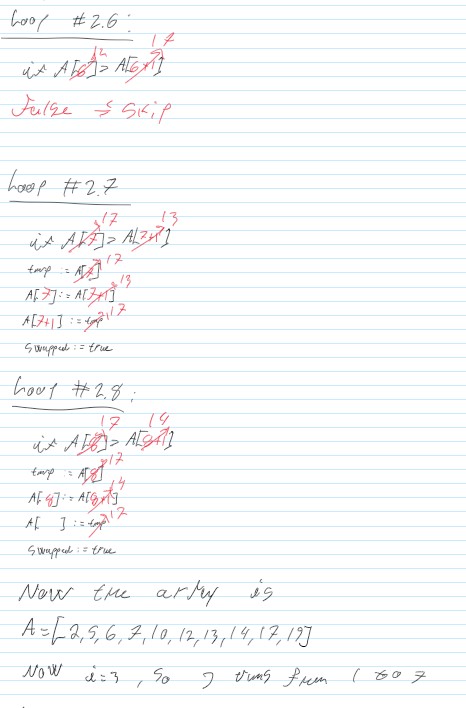 Loop #2.6:
12 17
if A[6] > A[6+1]
False → skip
Loop #2.7
17 13
if A[7] > A[7+1]
tmp := A[7] 17
A[7] := A[7+1] 13
A[7+1] := tmp 17
swapped := true
Loop #2.8:
17 14
if A[8] > A[8+1]
tmp := A[8] 17
A[8] := A[8+1] 14
A[ ] := tmp 17
swapped := true
Now the array is
A=[2,5,6,7,10,12,13,14,17,19]
Now i=3, so j runs from 1 to 7